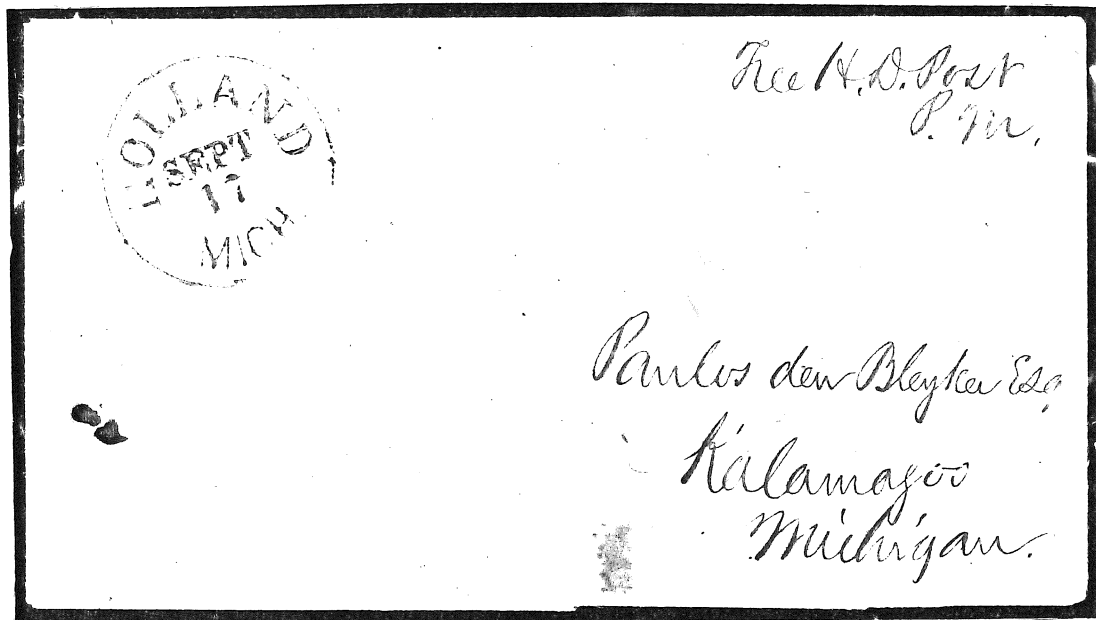 HOLLAND
SEPT
17
MICH
Free H. D. Post
P. M.
Paulus den Bleyker Esq
Kalamazoo
Michigan.